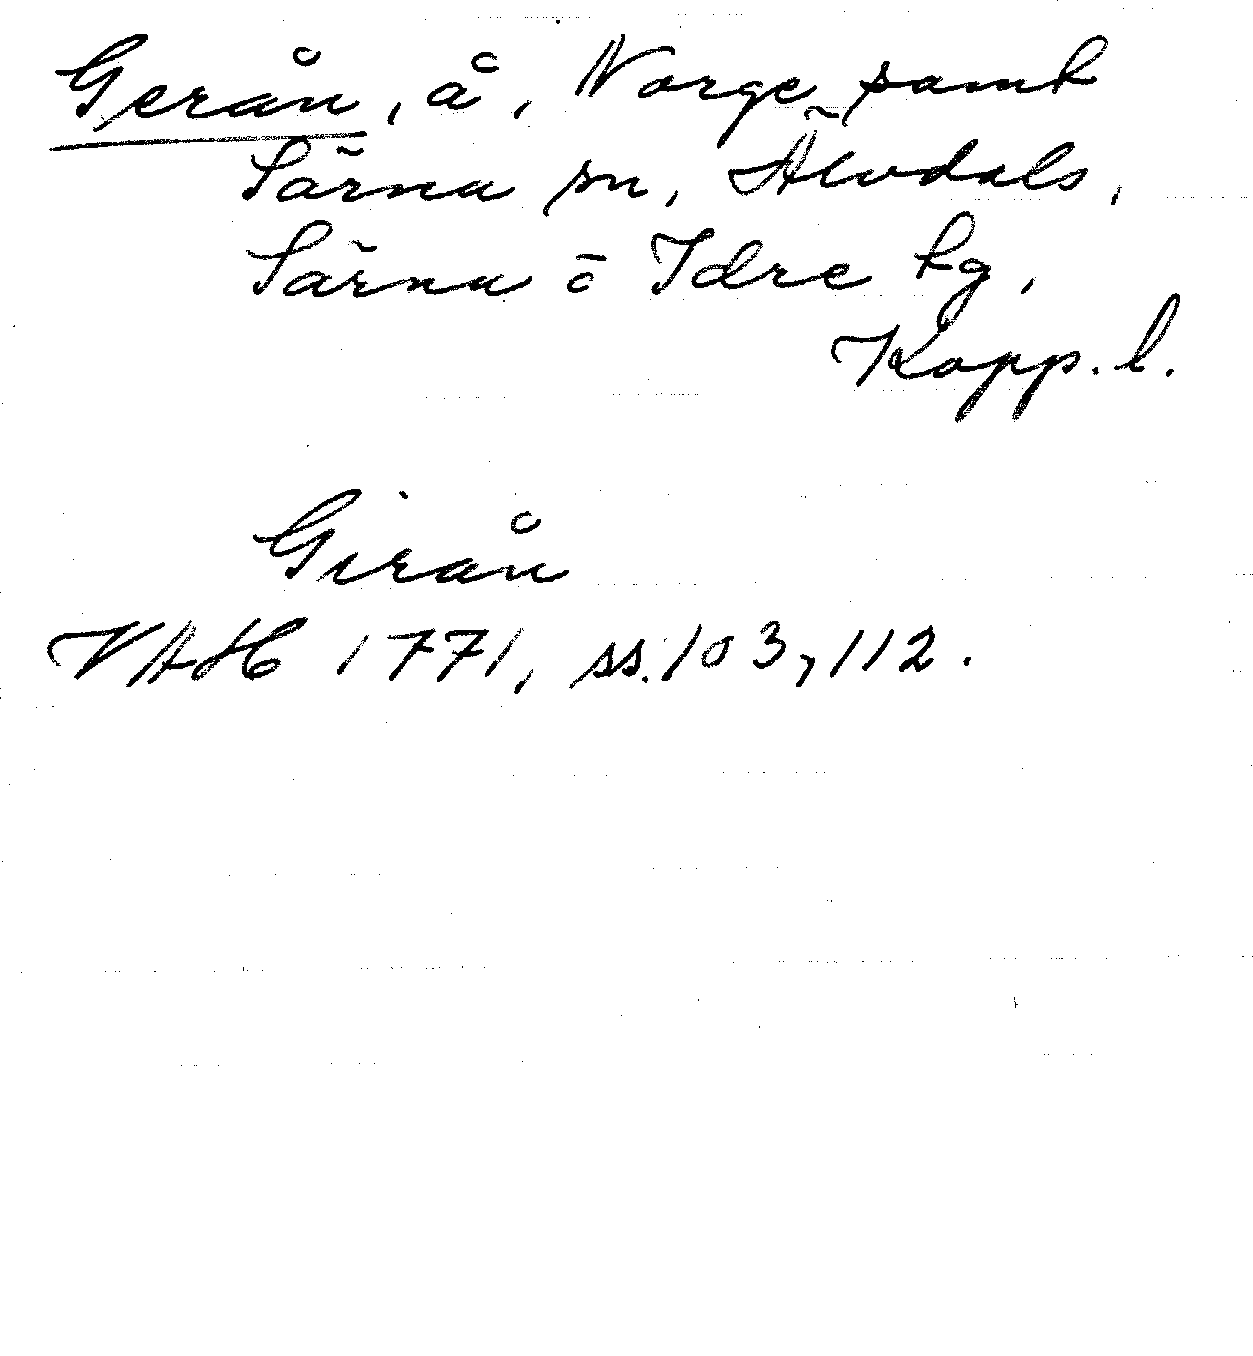 Gerån, å, Norge samt
Särna sn, Älvdals,
Särna o Idre tg,
Kopp. l.
Girån
VAH 1771, ss. 103, 112.